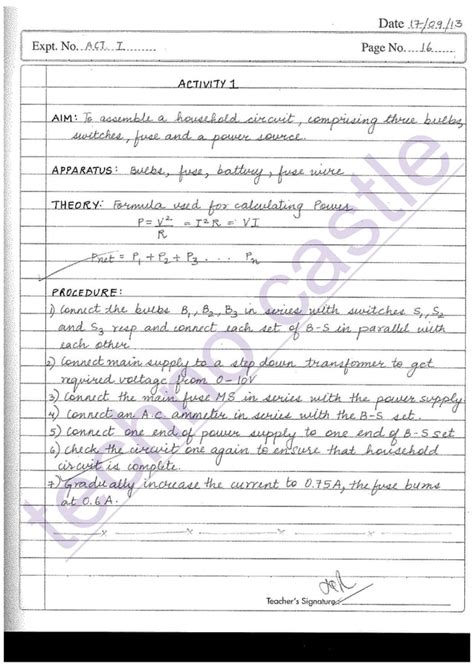 Date 17/09/13
Expt. No. ACT. I
Page No. 16
ACTIVITY 1
AIM: To assemble a household circuit, comprising three bulbs,
switches, fuse and a power source.
APPARATUS: Bulbs, fuse, battery, fuse wire
THEORY: Formula used for calculating Power
P = V²/R = I²R = VI
Pnet = P₁ + P₂ + P₃ ... Pn
PROCEDURE:
1) Connect the bulbs B₁, B₂, B₃ in series with switches S₁, S₂
and S₃ resp and connect each set of B-S in parallel with
each other
2) Connect main supply to a step down transformer to get
required voltage from 0-10V
3) Connect the main fuse MS in series with the power supply
4) Connect an A.C. ammeter in series with the B-S set.
5) Connect one end of power supply to one end of B-S set
6) Check the circuit one again to ensure that household
circuit is complete.
7) Gradually increase the current to 0.75A, the fuse burns
at 0.6A.
x x x x
Teacher's Signature
techno castle